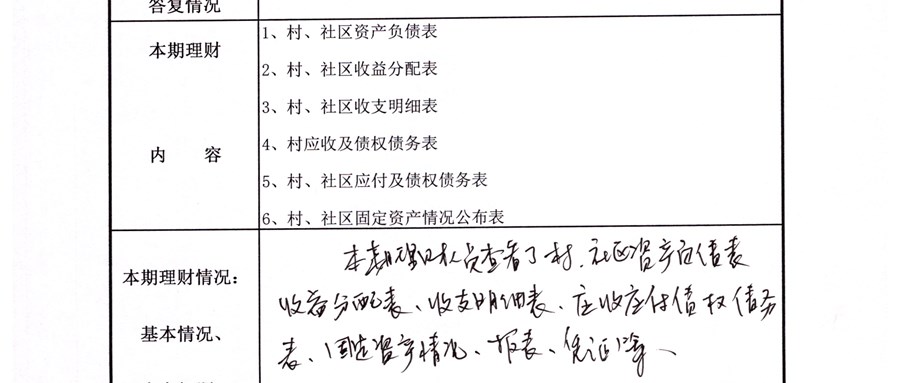 答复情况
本期理财
内 容
1、村、社区资产负债表
2、村、社区收益分配表
3、村、社区收支明细表
4、村应收及债权债务表
5、村、社区应付及债权债务表
6、村、社区固定资产情况公布表
本期理财情况：
基本情况、
本期理财人员查看了村、社区资产负债表
收益分配表、收支明细表、应收应付债权债务
表、固定资产情况、报表、凭证等、